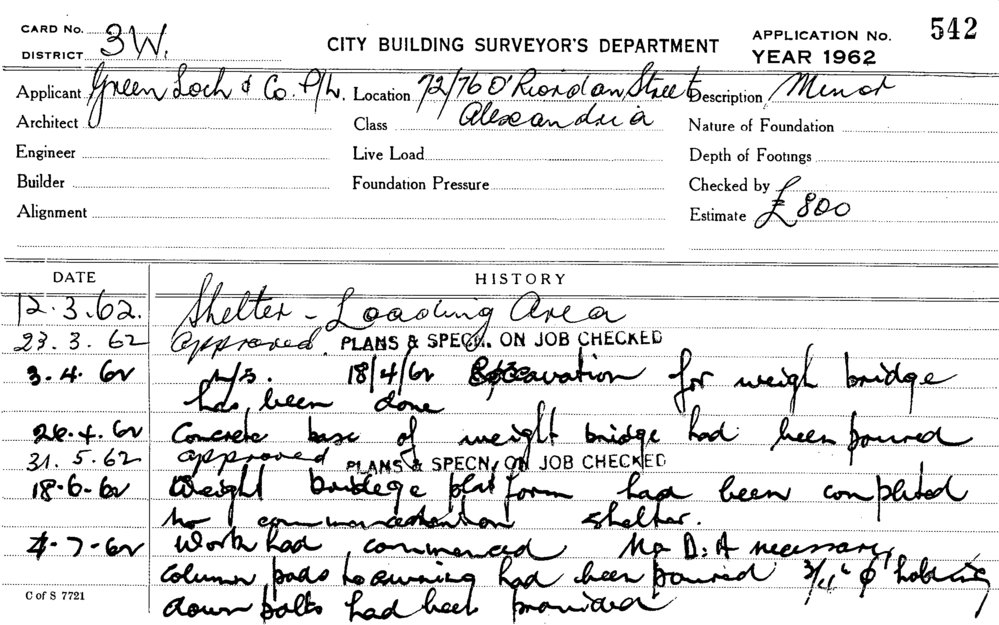 CARD No. 3W. CITY BUILDING SURVEYOR'S DEPARTMENT APPLICATION No. 542
DISTRICT YEAR 1962
Applicant Green Loch & Co. P/L. Location 72/76 O'Riordan Street Description Minor
Architect Class Alexandria Nature of Foundation
Engineer Live Load Depth of Footings
Builder Foundation Pressure Checked by
Alignment Estimate £800
DATE HISTORY
12.3.62. Shelter - Loading Area
23.3.62 approved. PLANS & SPECN. ON JOB CHECKED
3.4.62 N/S. 18/4/62 Excavation for weigh bridge
has been done
26.4.62 Concrete base of weight bridge had been poured
31.5.62 approved PLANS & SPECN, ON JOB CHECKED
18-6-62 Weight bridege platform had been completed
no commencement on shelter.
4-7-62 Work had commenced No D.A necessary
column pads to awning had been poured 3/4" φ holding
down bolts had been provided
C of S 7721